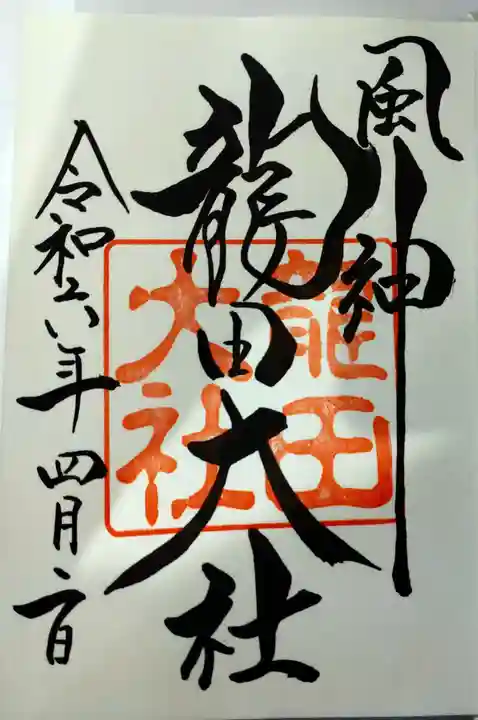 風神
龍田大社
龍田
大社
令和六年四月二日